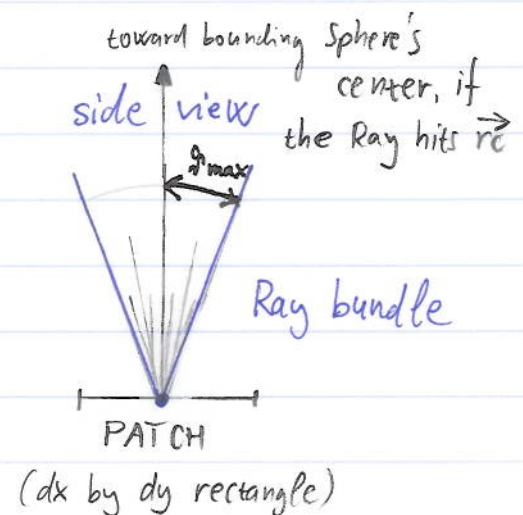 toward bounding Sphere's
center, if
side view
the Ray hits r⃗c
ϑmax
Ray bundle
PATCH
(dx by dy rectangle)